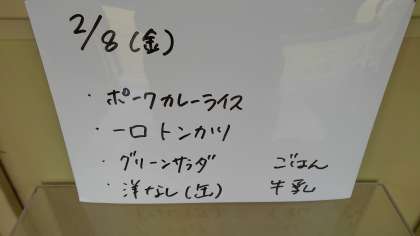 2/8(金)
・ポークカレーライス
・一口トンカツ
・グリーンサラダ ごはん
・洋なし(缶) 牛乳